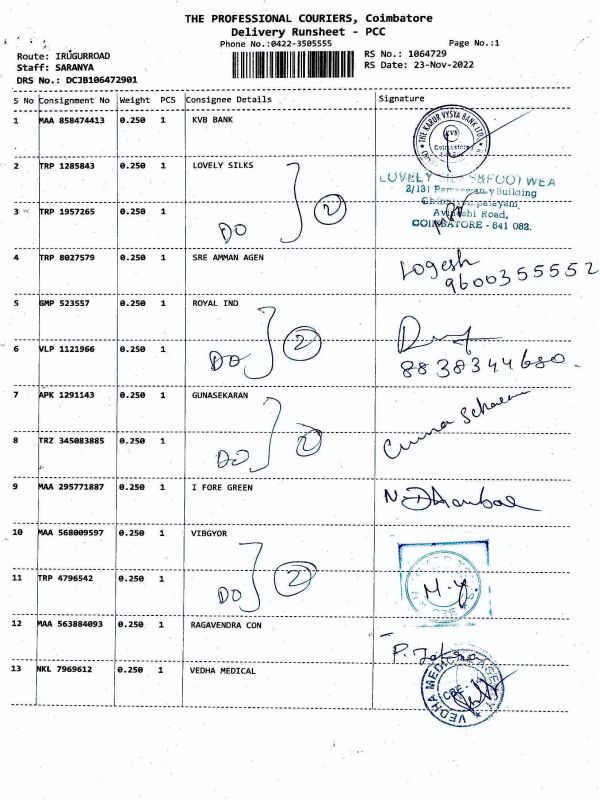 THE PROFESSIONAL COURIERS, Coimbatore
Delivery Runsheet - PCC
Phone No.:0422-3505555 Page No.:1
Route: IRUGURROAD RS No.: 1064729
Staff: SARANYA RS Date: 23-Nov-2022
DRS No.: DCJB106472901
S No Consignment No Weight PCS Consignee Details Signature
1 MAA 858474413 0.250 1 KVB BANK
THE KARUR VYSYA BANK LTD
KVB
Coimbatore
2 TRP 1285843 0.250 1 LOVELY SILKS
LOVELY &FOOTWEA
2/131 Building
3 TRP 1957265 0.250 1
DO 2
palayam,
Road,
COIMBATORE - 641 062.
4 TRP 8027579 0.250 1 SRE AMMAN AGEN Logesh
9600355552
5 GMP 523557 0.250 1 ROYAL IND
6 VLP 1121966 0.250 1 DO 2
8838344680.
7 APK 1291143 0.250 1 GUNASEKARAN
8 TRZ 345083885 0.250 1 DO 2
9 MAA 295771887 0.250 1 I FORE GREEN
10 MAA 568009597 0.250 1 VIBGYOR
11 TRP 4796542 0.250 1 DO 2 M.Y.
12 MAA 563884093 0.250 1 RAGAVENDRA CON
13 NKL 7969612 0.250 1 VEDHA MEDICAL
VEDHA MEDIC
CBE - 14